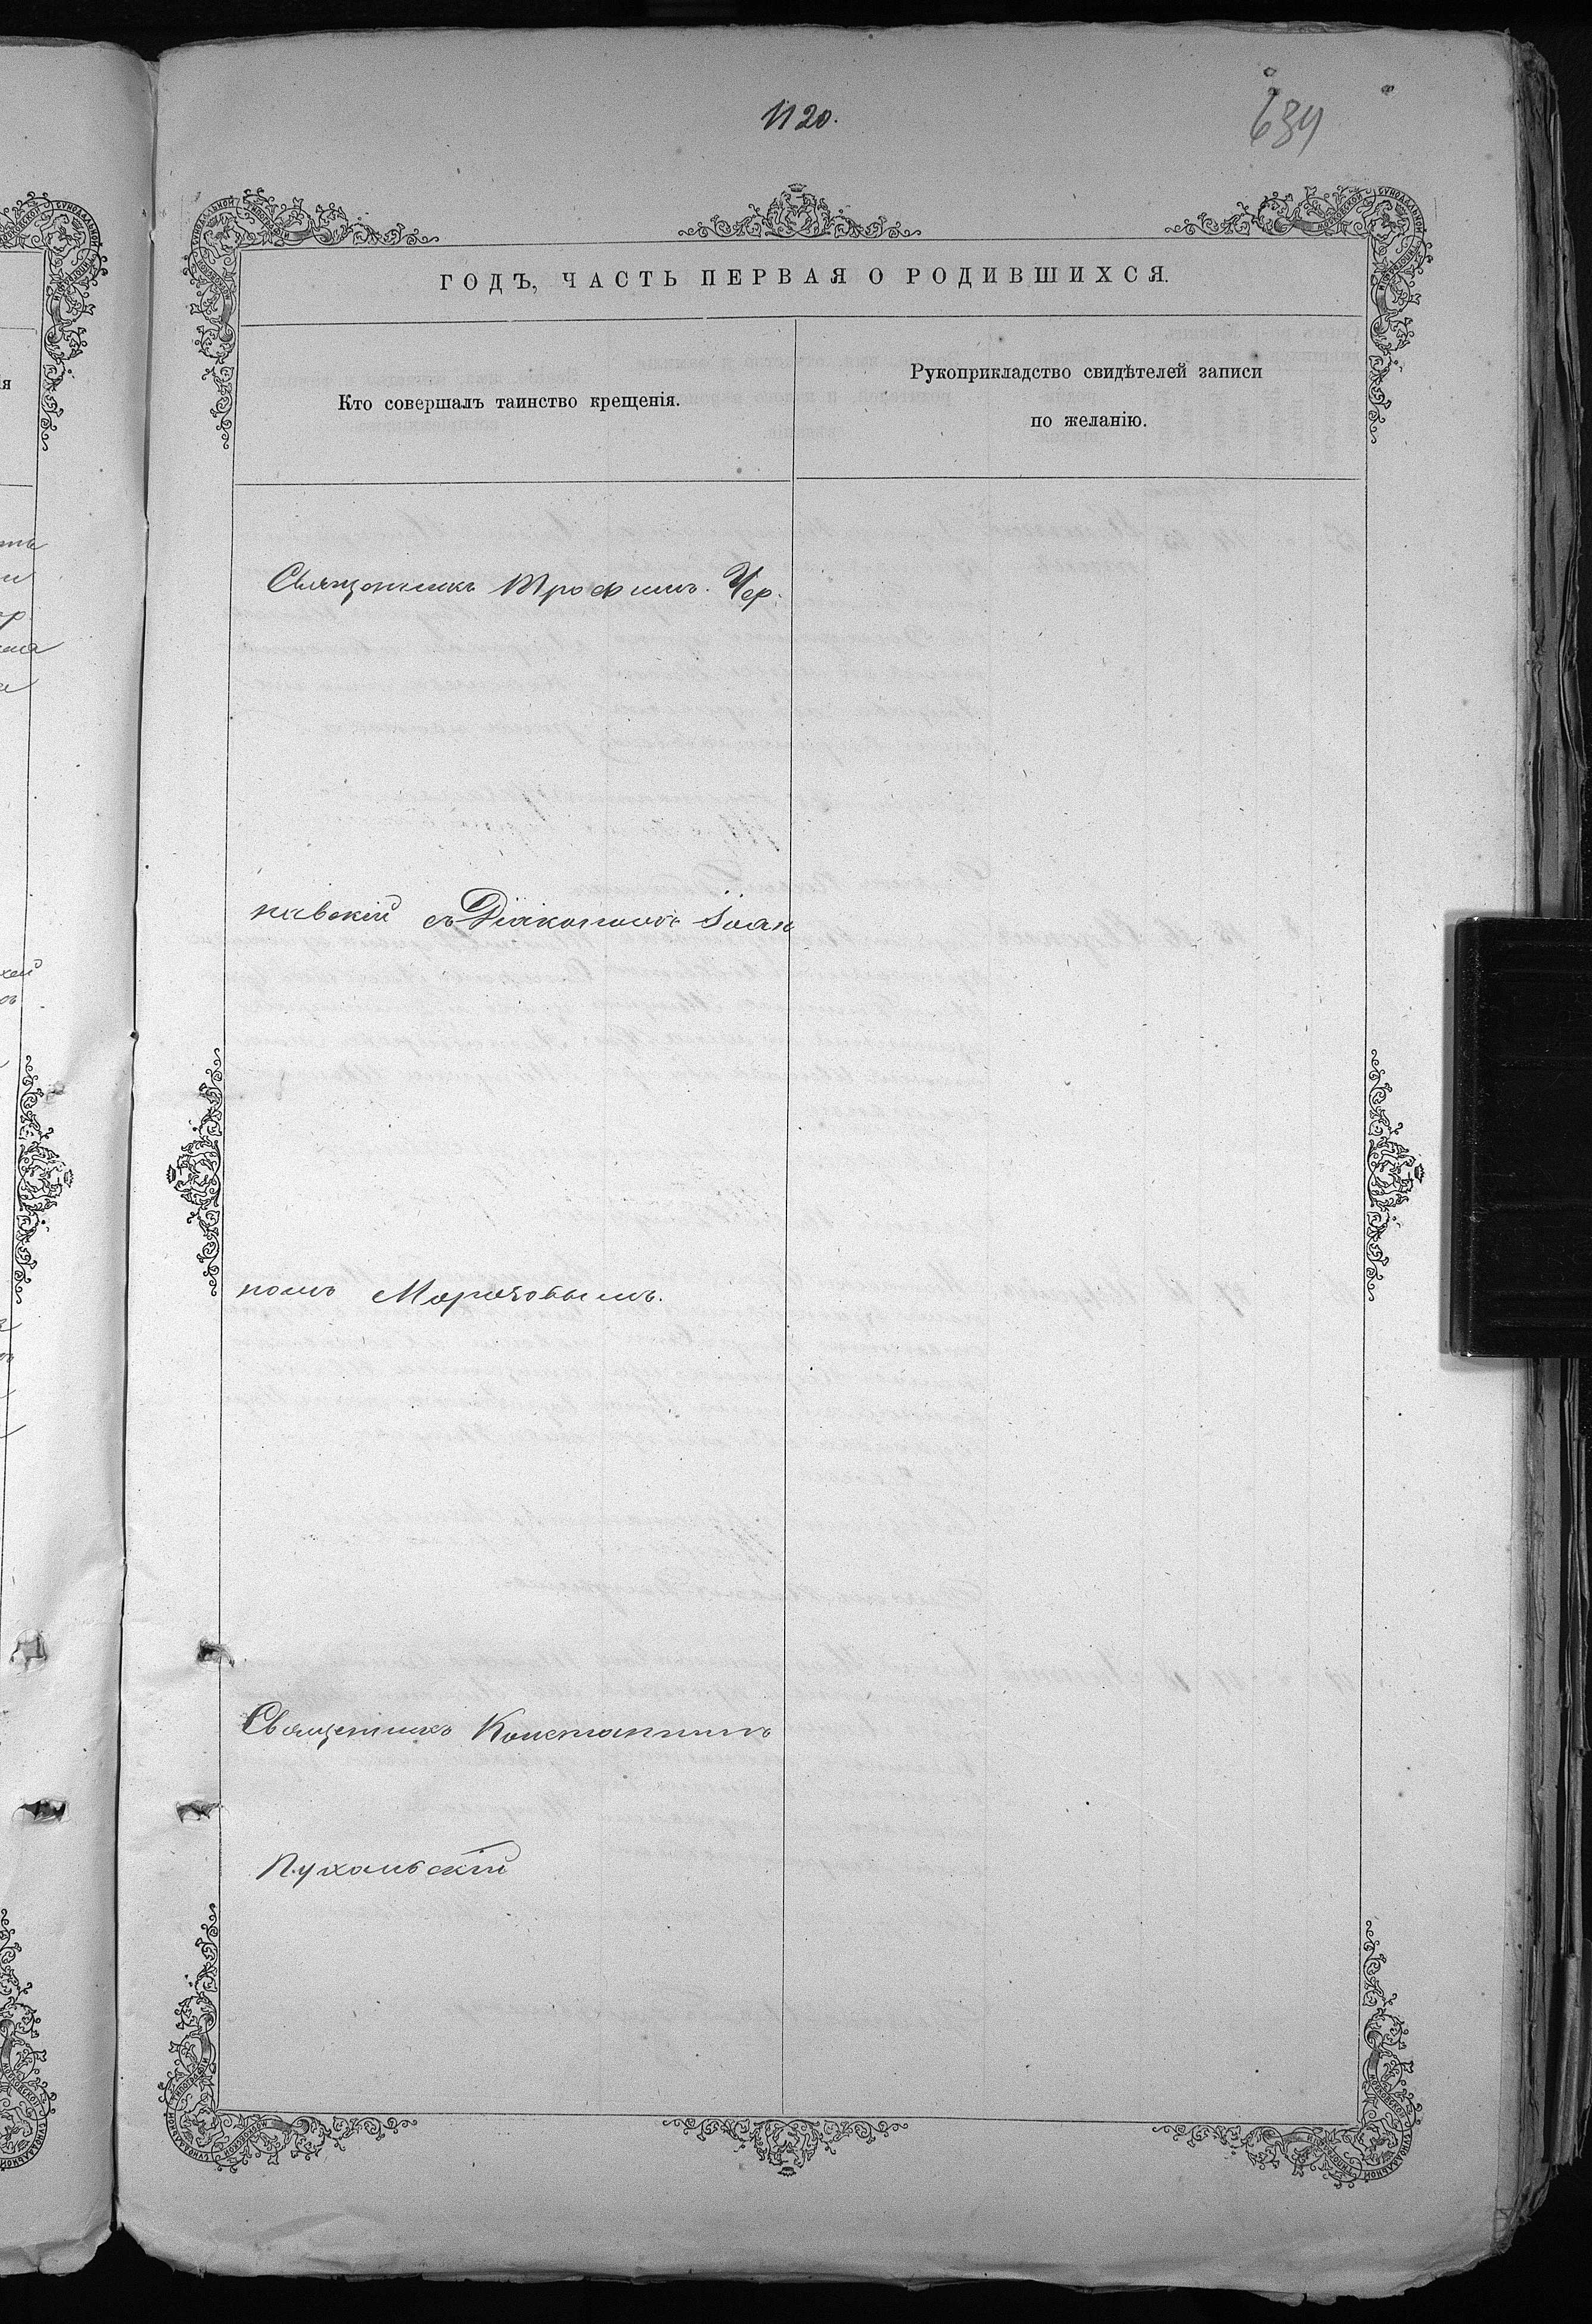 1120.
634
ГОДЪ, ЧАСТЬ ПЕРВАЯ О РОДИВШИХСЯ.
Кто совершалъ таинство крещенія.
Рукоприкладство свидѣтелей записи
по желанію.
Священникъ Трофимъ Чер-
навскій съ Діакономъ Іоан
номъ Морозовымъ.
Священникъ Константинъ
Пухальскій